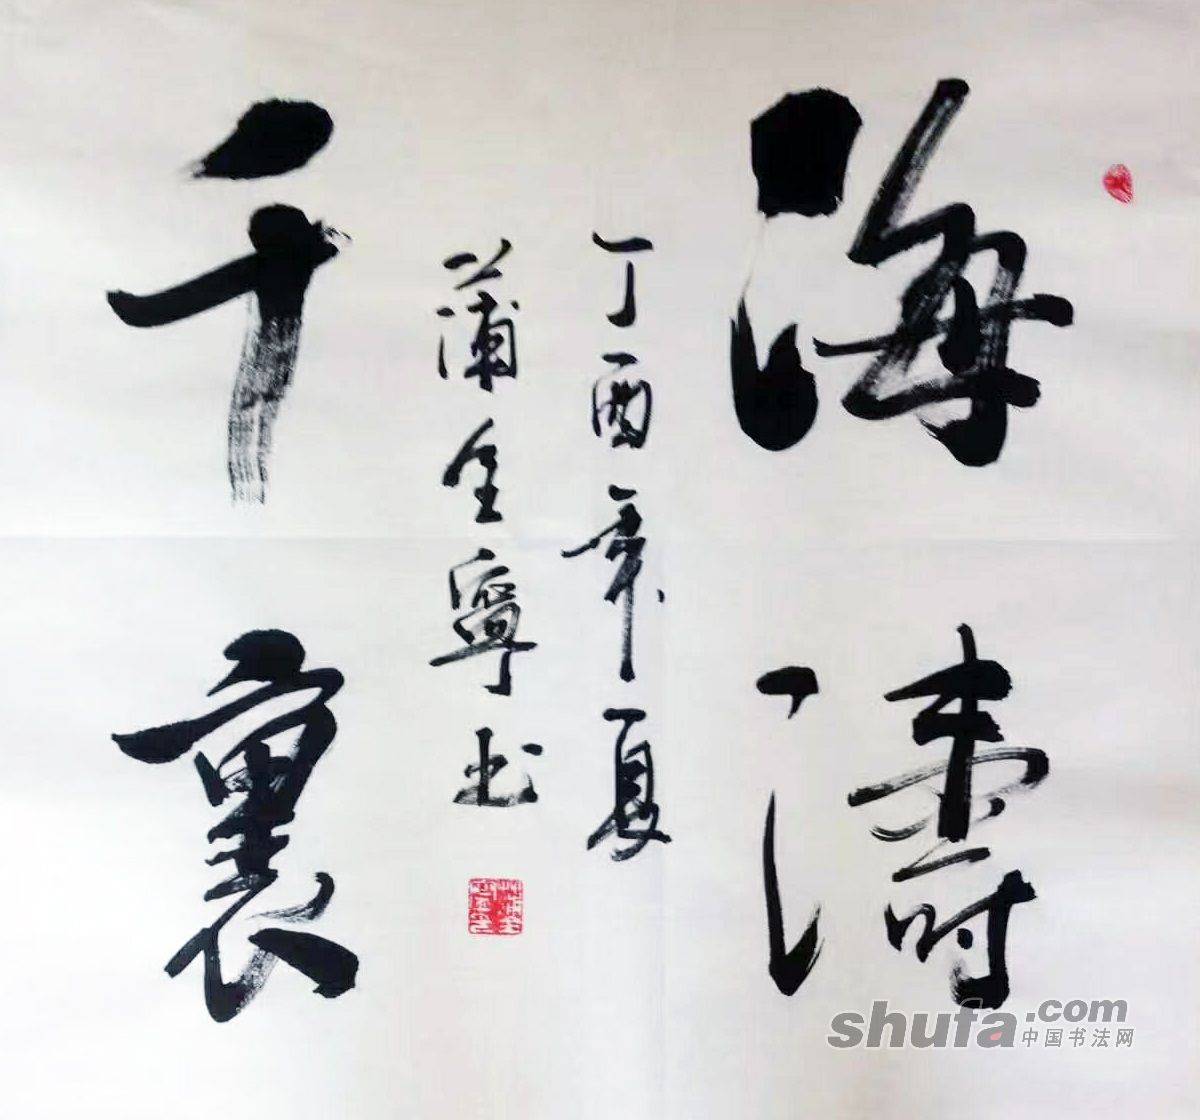 海濤
千裏
丁酉年夏
蒲全寧书
shufa.com
中国书法网